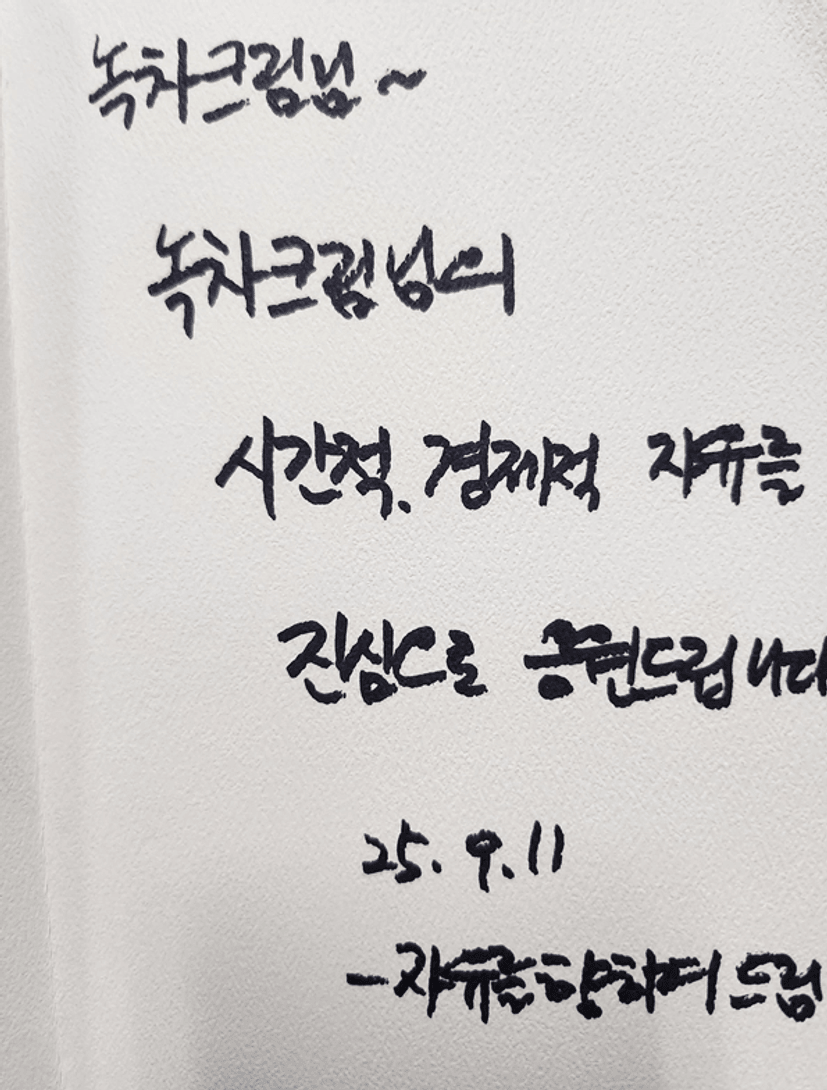 녹차크림님~
녹차크림님의
시간적. 경제적 자유를
진심으로 응원드립니다
25. 9. 11
- 자유를향하여 드림